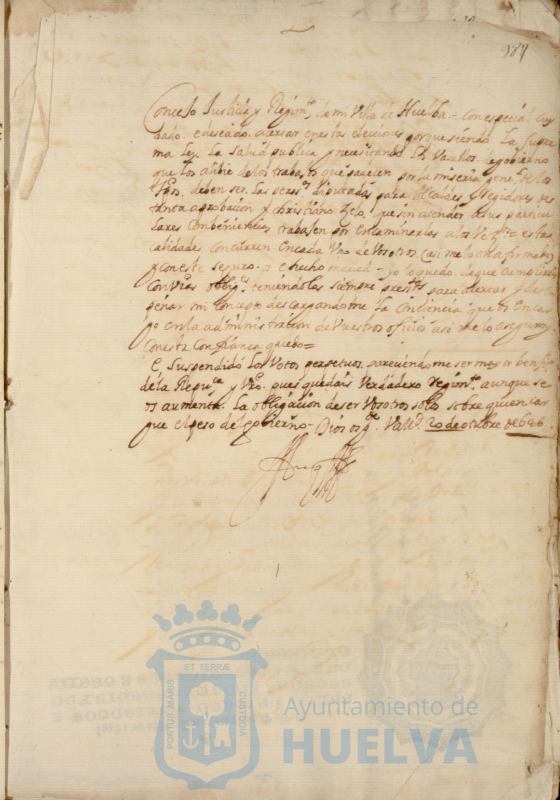 187
Concejo Justicia y Regim.to de mi Villa de Huelba = con especial cuy
dado e deseado acertar en estas elecciones porque siendo La supre
ma Ley La salud publica y necesitando los Vasallos de gobierno
que los alibie de los trabajos que padecen por la miseria gene.l de los
tpos. deben ser Las pers.s Diputadas para Alcaldes y Regidores de
tanta aprobacion y christiano zelo, que sin atender a sus particu
lares combeniencias trabajen por encaminarlas a los Vez.os estas
calidades concurren en cada Vno de Vosotros
y con este seguro e hecho merced yo lo quedo de que cumplireis
con Vras oblig.s teniendolas siempre pres.tes para alentar y desem
peñar mi concepto descargandome La conciencia que os encar
go en la administracion de Vuestros officios assi me lo aseguro
con esta confianca quedo =
E Suspendido Los Votos perpetuos pareciendome ser m.or benef.o
de la Repu.ca y Vro. pues quedais Verdadero regim.to aunque se
os aumenta La obligacion de ser Vosotros solos sobre quien car
gue el peso de gobierno Dios os g.e Vall.d 20 de otubre de 646
ET TERRÆ
PORTUS MARIS
CUSTODIA
Ayuntamiento de
HUELVA